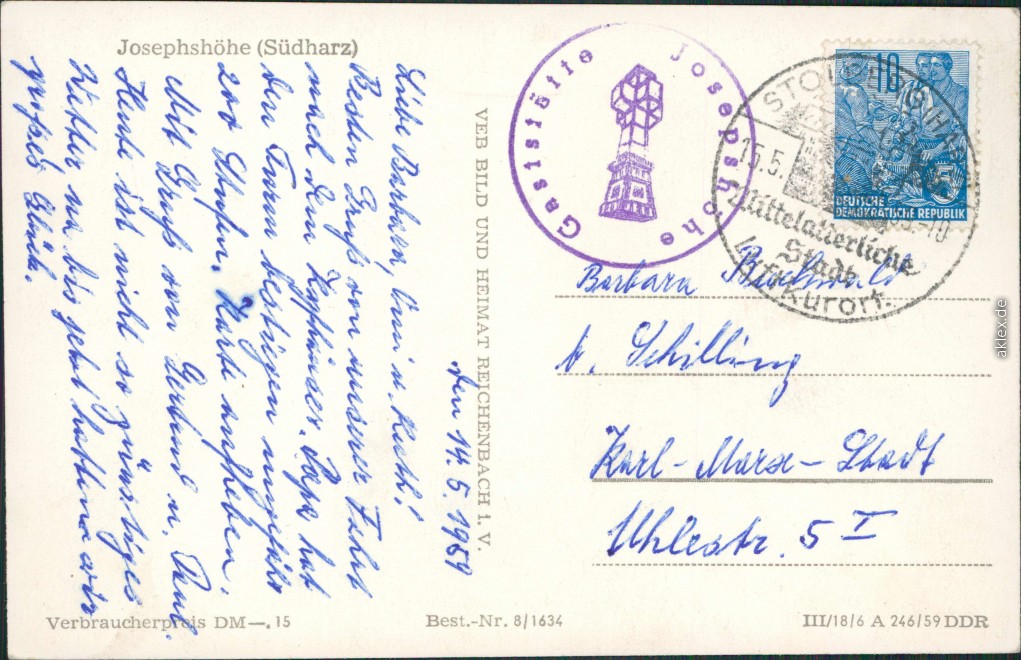 Josephshöhe (Südharz)
Gaststätte Josephshöhe
10
DEUTSCHE
DEMOKRATISCHE REPUBLIK
STOLBERG (HARZ)
15.5.
-10
Mittelalterliche
Stadt
Luftkurort.
den 14.5.1959
Liebe Barbara, Omi u.
Besten Gruß von unserer Fahrt
nach dem Kyffhäuser. Papa hat
den Turm bestiegen ungefähr
200 Stufen. Karte aufheben.
Mit Gruß von Gerlind u.
Heute ist nicht so günstiges
Wetter na bis jetzt hatten wir
großes Glück.
VEB BILD UND HEIMAT REICHENBACH i. V.
Barbara
b. Schilling
Karl-Marx-Stadt
Uhlestr. 5 I
Verbraucherpreis DM —.15
Best.-Nr. 8/1634
III/18/6 A 246/59 DDR
aklex.de